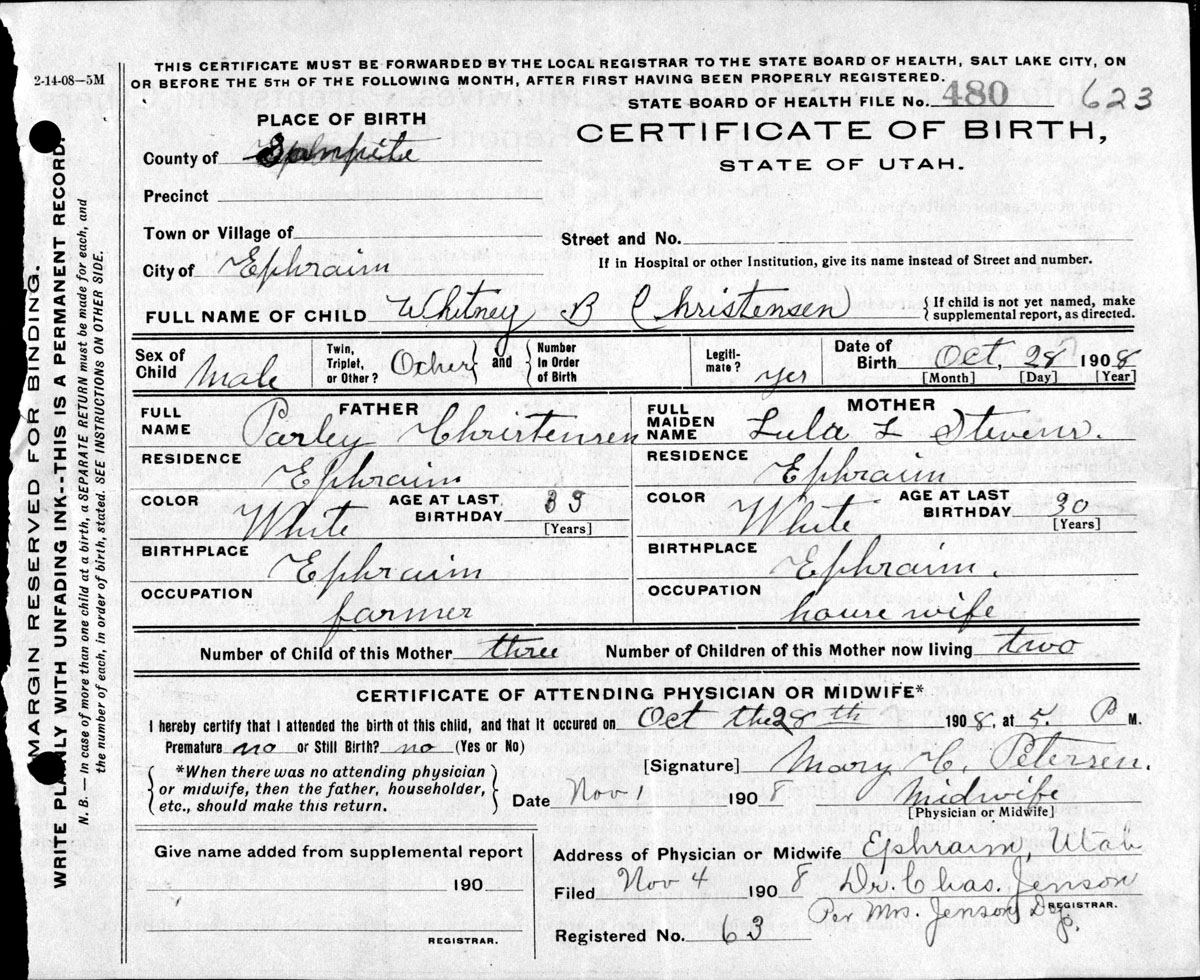 2-14-08—5M
THIS CERTIFICATE MUST BE FORWARDED BY THE LOCAL REGISTRAR TO THE STATE BOARD OF HEALTH, SALT LAKE CITY, ON
OR BEFORE THE 5TH OF THE FOLLOWING MONTH, AFTER FIRST HAVING BEEN PROPERLY REGISTERED.
STATE BOARD OF HEALTH FILE No. 480 623
PLACE OF BIRTH
CERTIFICATE OF BIRTH,
STATE OF UTAH.
County of Sanpete
Precinct
Town or Village of
Street and No.
City of Ephraim
If in Hospital or other Institution, give its name instead of Street and number.
FULL NAME OF CHILD Whitney B Christensen {If child is not yet named, make supplemental report, as directed.
Sex of Child Male Twin, Triplet, or Other? Other} and {Number in Order of Birth Legiti-mate? yes Date of Birth Oct, 28 1908
[Month] [Day] [Year]
FATHER
FULL NAME Parley Christensen
RESIDENCE Ephraim
COLOR White AGE AT LAST BIRTHDAY 33
[Years]
BIRTHPLACE Ephraim
OCCUPATION farmer
MOTHER
FULL MAIDEN NAME Lula L Stevens.
RESIDENCE Ephraim
COLOR White AGE AT LAST BIRTHDAY 30
[Years]
BIRTHPLACE Ephraim.
OCCUPATION house wife
Number of Child of this Mother three Number of Children of this Mother now living two
CERTIFICATE OF ATTENDING PHYSICIAN OR MIDWIFE*
I hereby certify that I attended the birth of this child, and that it occured on Oct the 28th 1908, at 5. P M.
Premature no or Still Birth? no (Yes or No)
{*When there was no attending physician
or midwife, then the father, householder,
etc., should make this return.}
[Signature] Mary C. Petersen.
Date Nov 1 1908 Midwife
[Physician or Midwife]
Give name added from supplemental report
190
REGISTRAR.
Address of Physician or Midwife Ephraim, Utah
Filed Nov 4 1908 Dr. Chas. Jenson
REGISTRAR.
Per Mrs. Jenson Dep.
Registered No. 63
MARGIN RESERVED FOR BINDING.
WRITE PLAINLY WITH UNFADING INK--THIS IS A PERMANENT RECORD.
N. B.—In case of more than one child at a birth, a SEPARATE RETURN must be made for each, and
the number of each, in order of birth, stated. SEE INSTRUCTIONS ON OTHER SIDE.